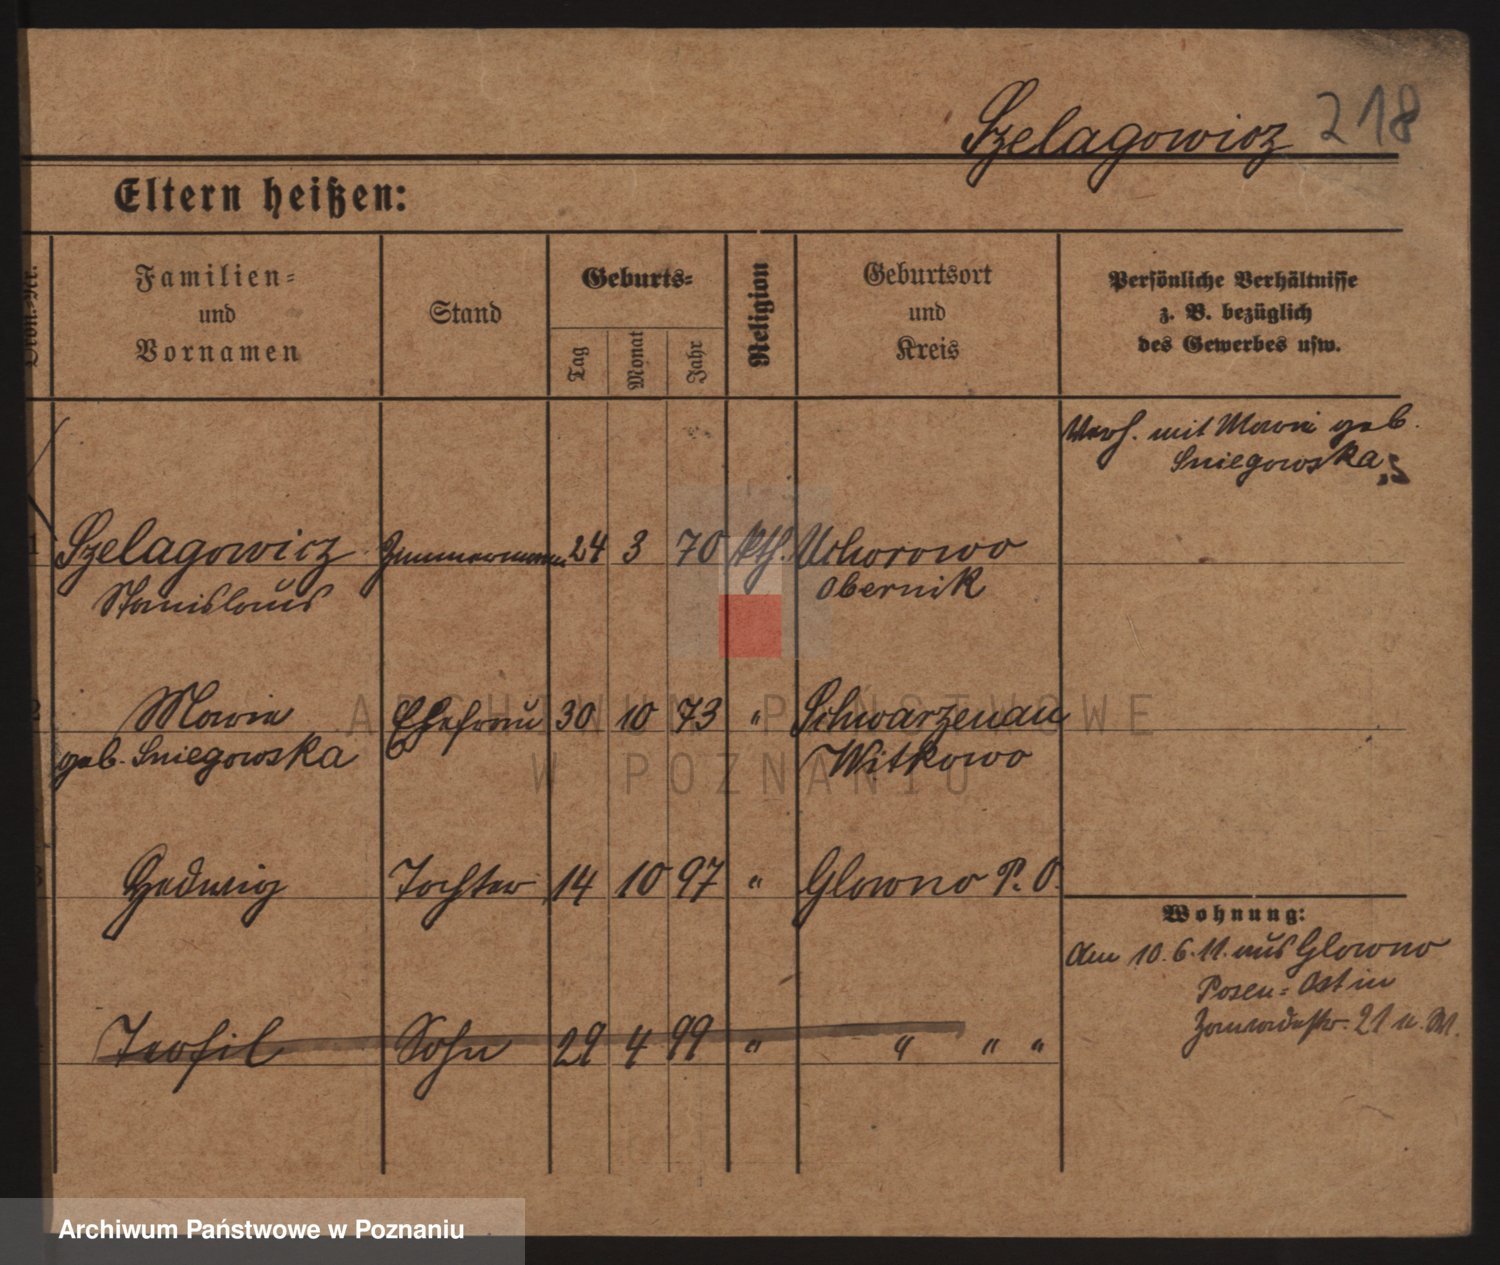 Szelagowicz 218
Eltern heißen:
Ordn.-Nr.
Familien-
und
Vornamen
Stand
Geburts-
Tag
Monat
Jahr
Religion
Geburtsort
und
Kreis
Persönliche Verhältnisse
z. B. bezüglich
des Gewerbes usw.
Verh. mit Marie geb.
Sniegowska
1 Szelagowicz Zimmermann 24 3 70 kth. Uchorowo
Stanislaus Obernik
2 Marie Ehefrau 30 10 73 " Schwarzenau
geb. Sniegowska Witkowo
3 Hedwig Tochter 14 10 97 " Glowno P. O.
Wohnung:
Am 10.6.11. aus Glowno
Posen-Ost in
21 u. W.
Teofil Sohn 29 4 99 " " " "
ARCHIWUM PAŃSTWOWE
W POZNANIU
Archiwum Państwowe w Poznaniu